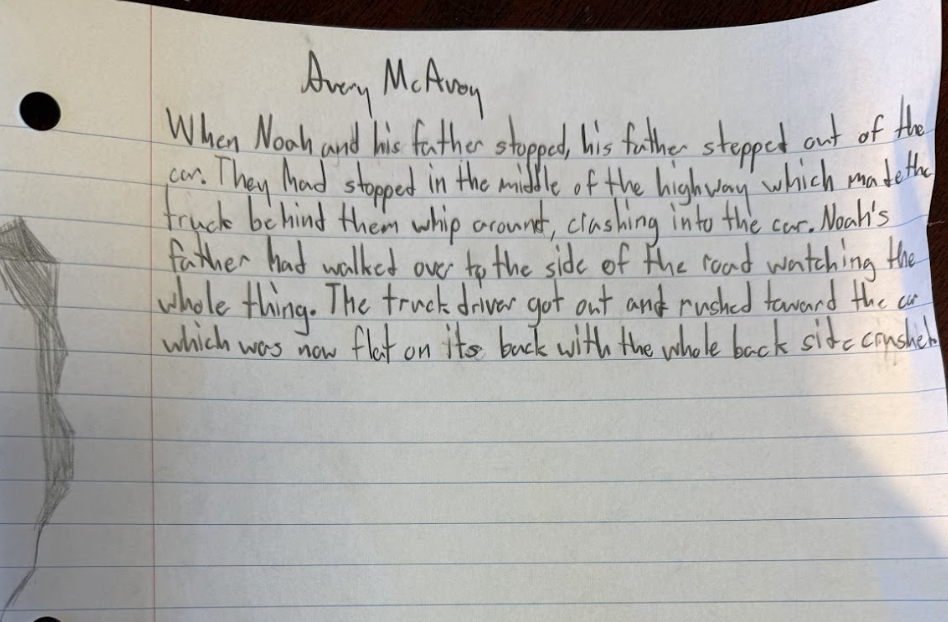 Avery McAvoy
When Noah and his father stopped, his father stepped out of the
car. They had stopped in the middle of the highway which made the
truck behind them whip around, clashing into the car. Noah's
father had walked over to the side of the road watching the
whole thing. The truck driver got out and rushed toward the car
which was now flat on its back with the whole back side crushed